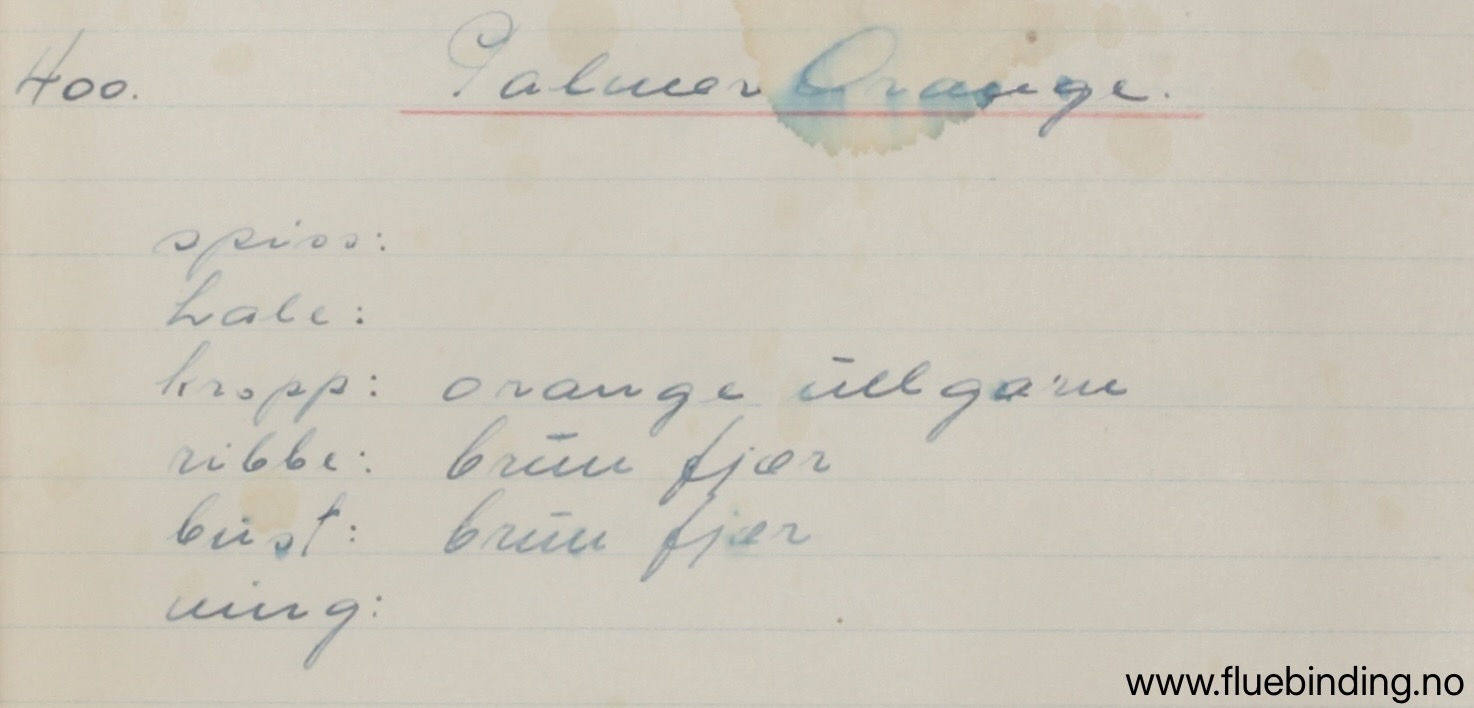 400. Palmer Orange.
spiss:
hale:
kropp: orange ullgarn
ribbe: brun fjær
bust: brun fjær
ving:
www.fluebinding.no